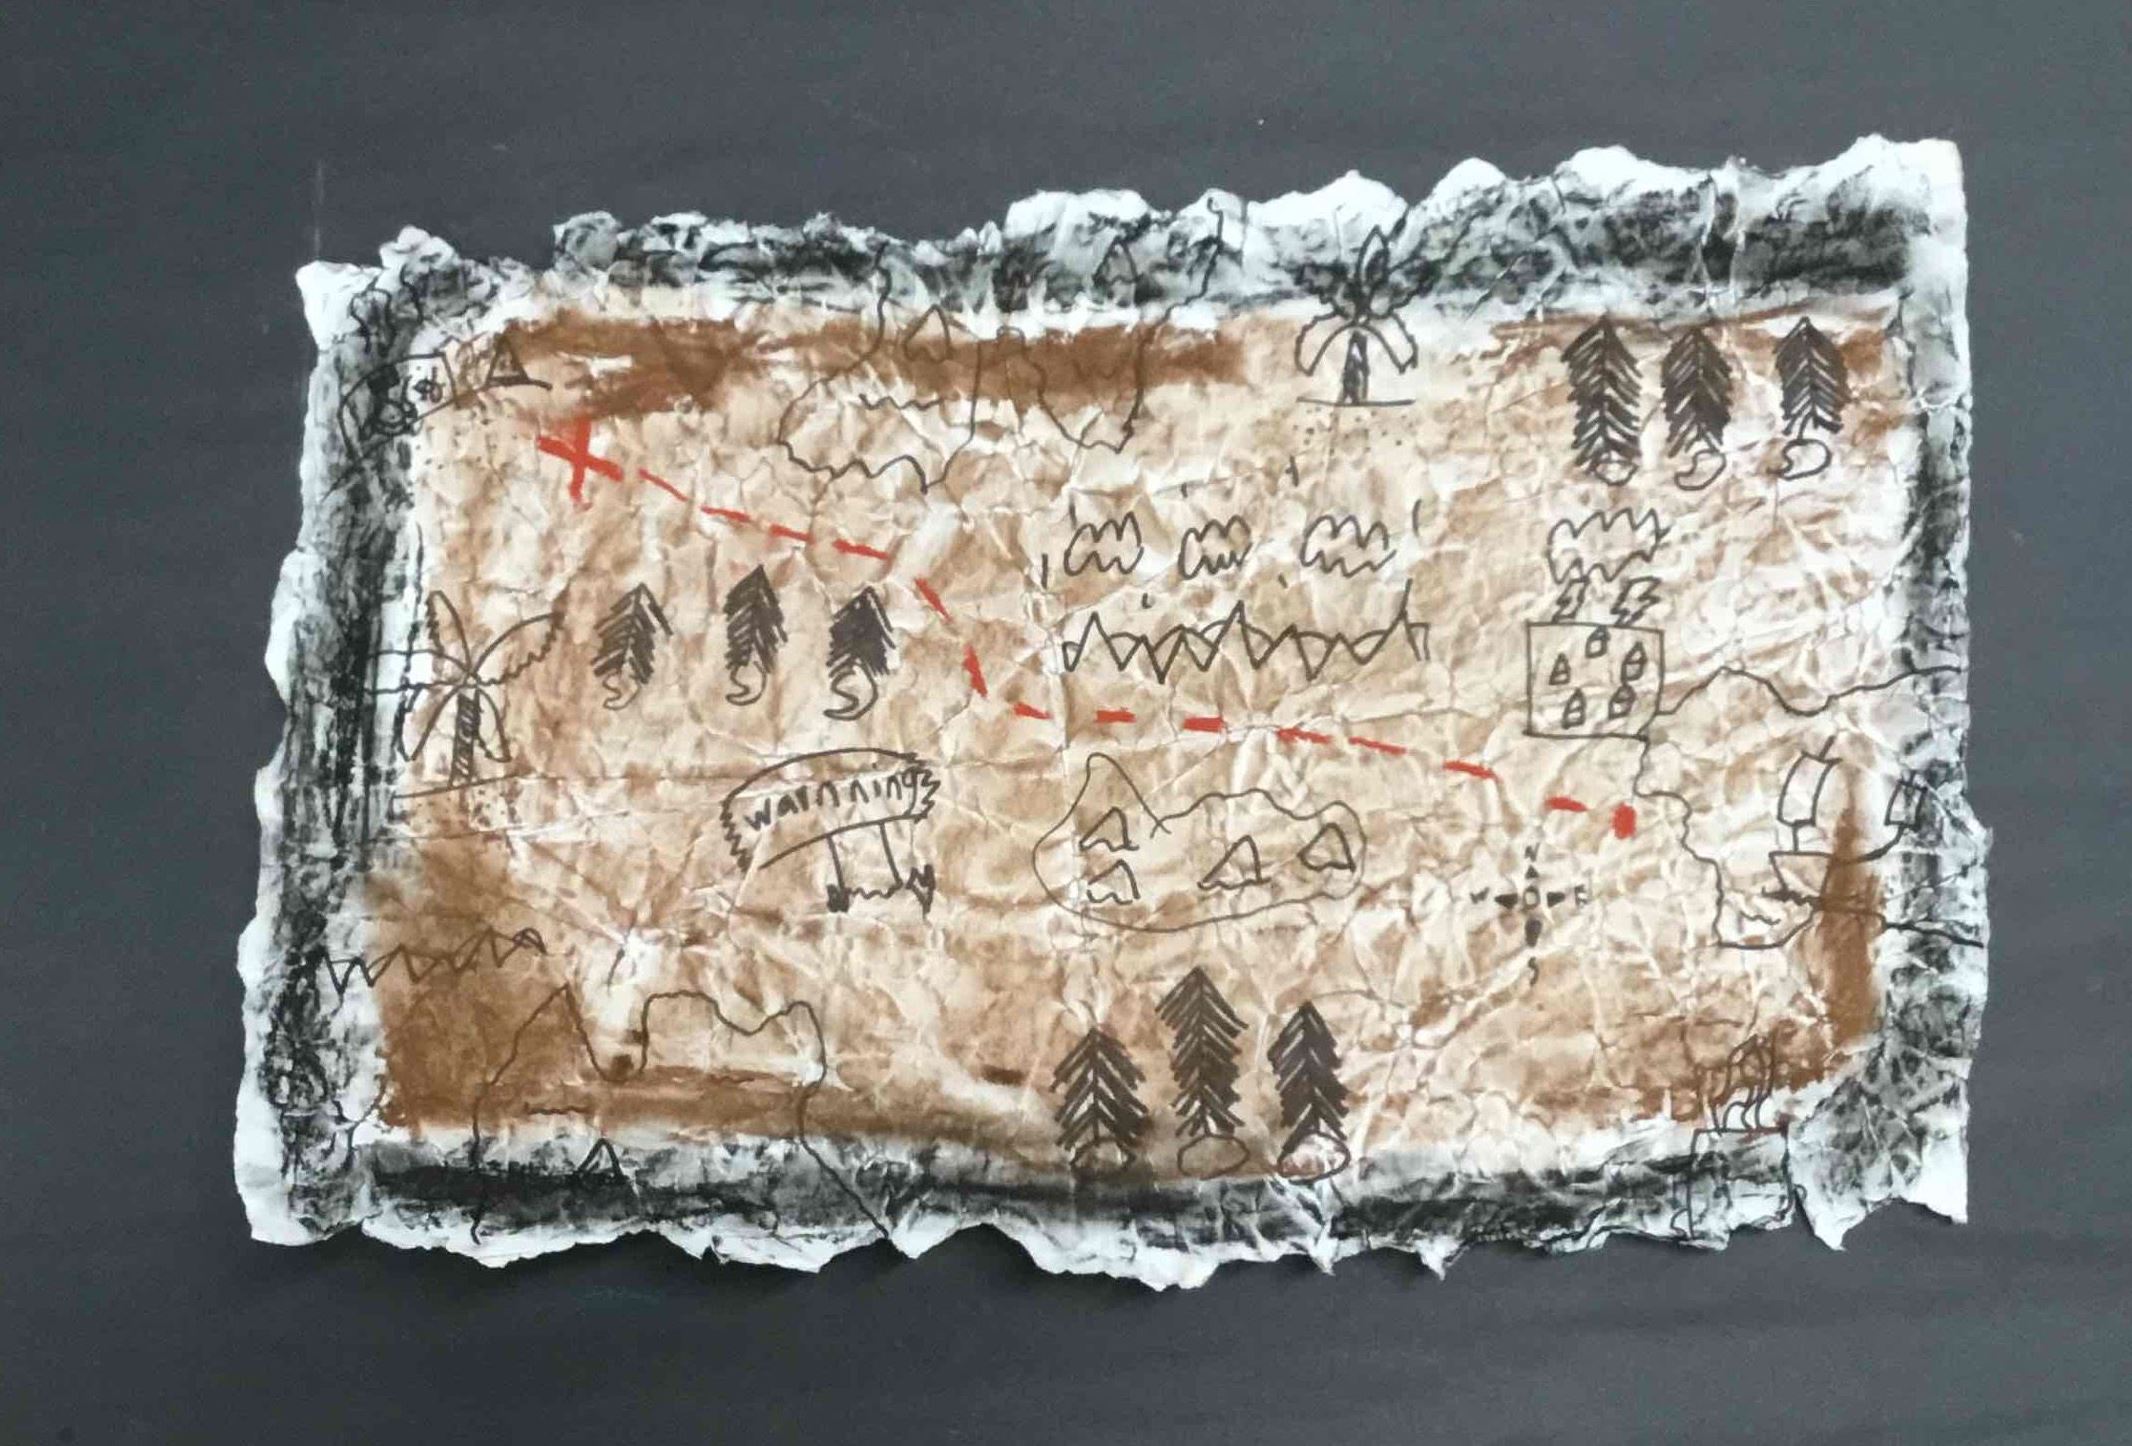 warnning
N
W E
S